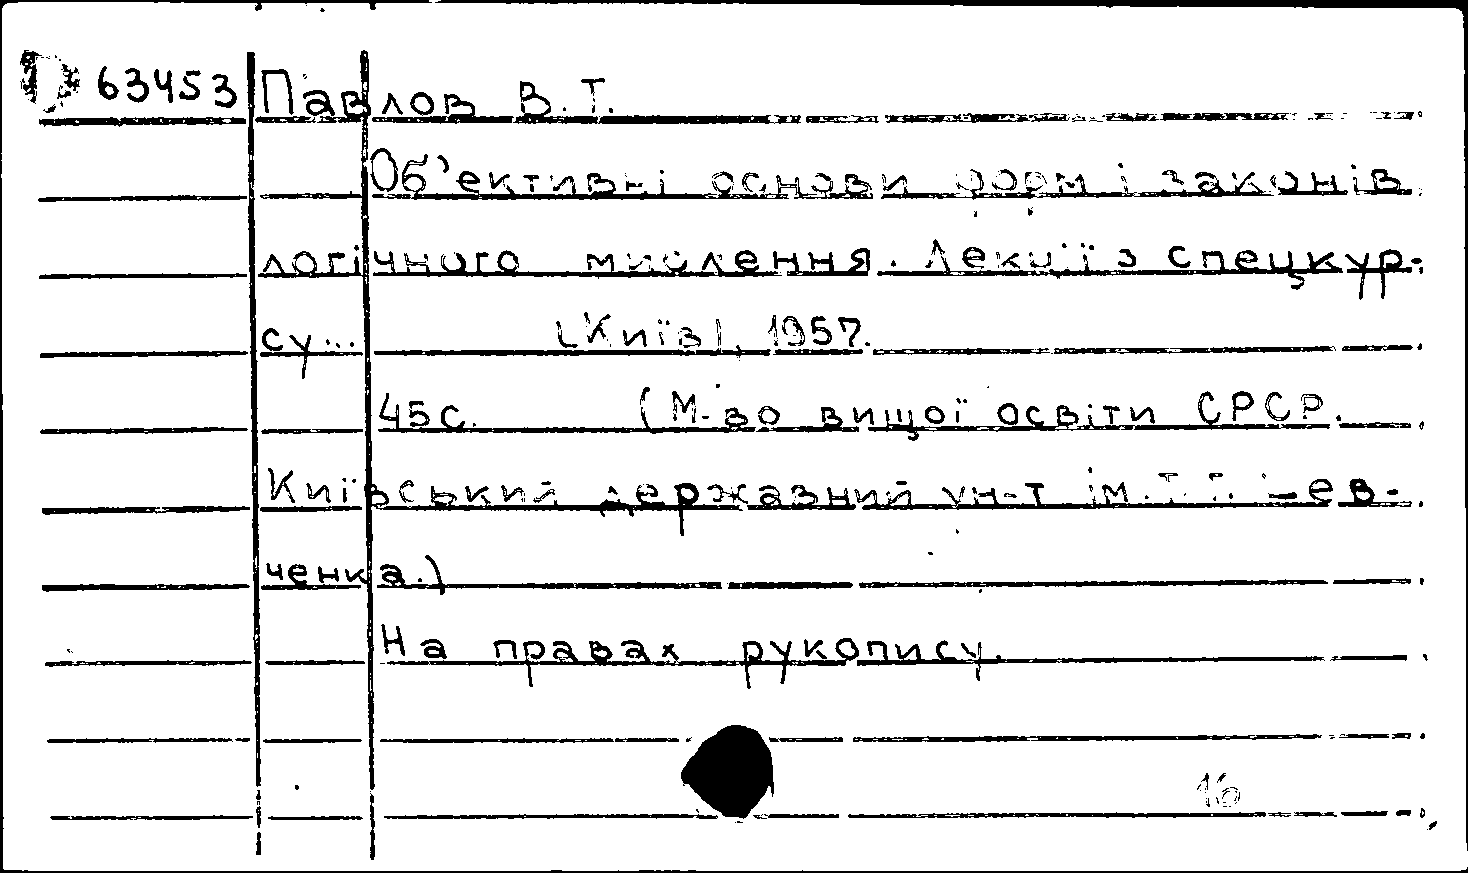 D 63453 Павлов В.Т.
Об'єктивні основи форм і законів
логічного мислення. Лекції з спецкур-
су... [Київ], 1957.
45с. (М-во вищої освіти СРСР.
Київський державний ун-т ім. Т.Г. Шев-
ченка.)
На правах рукопису.
16